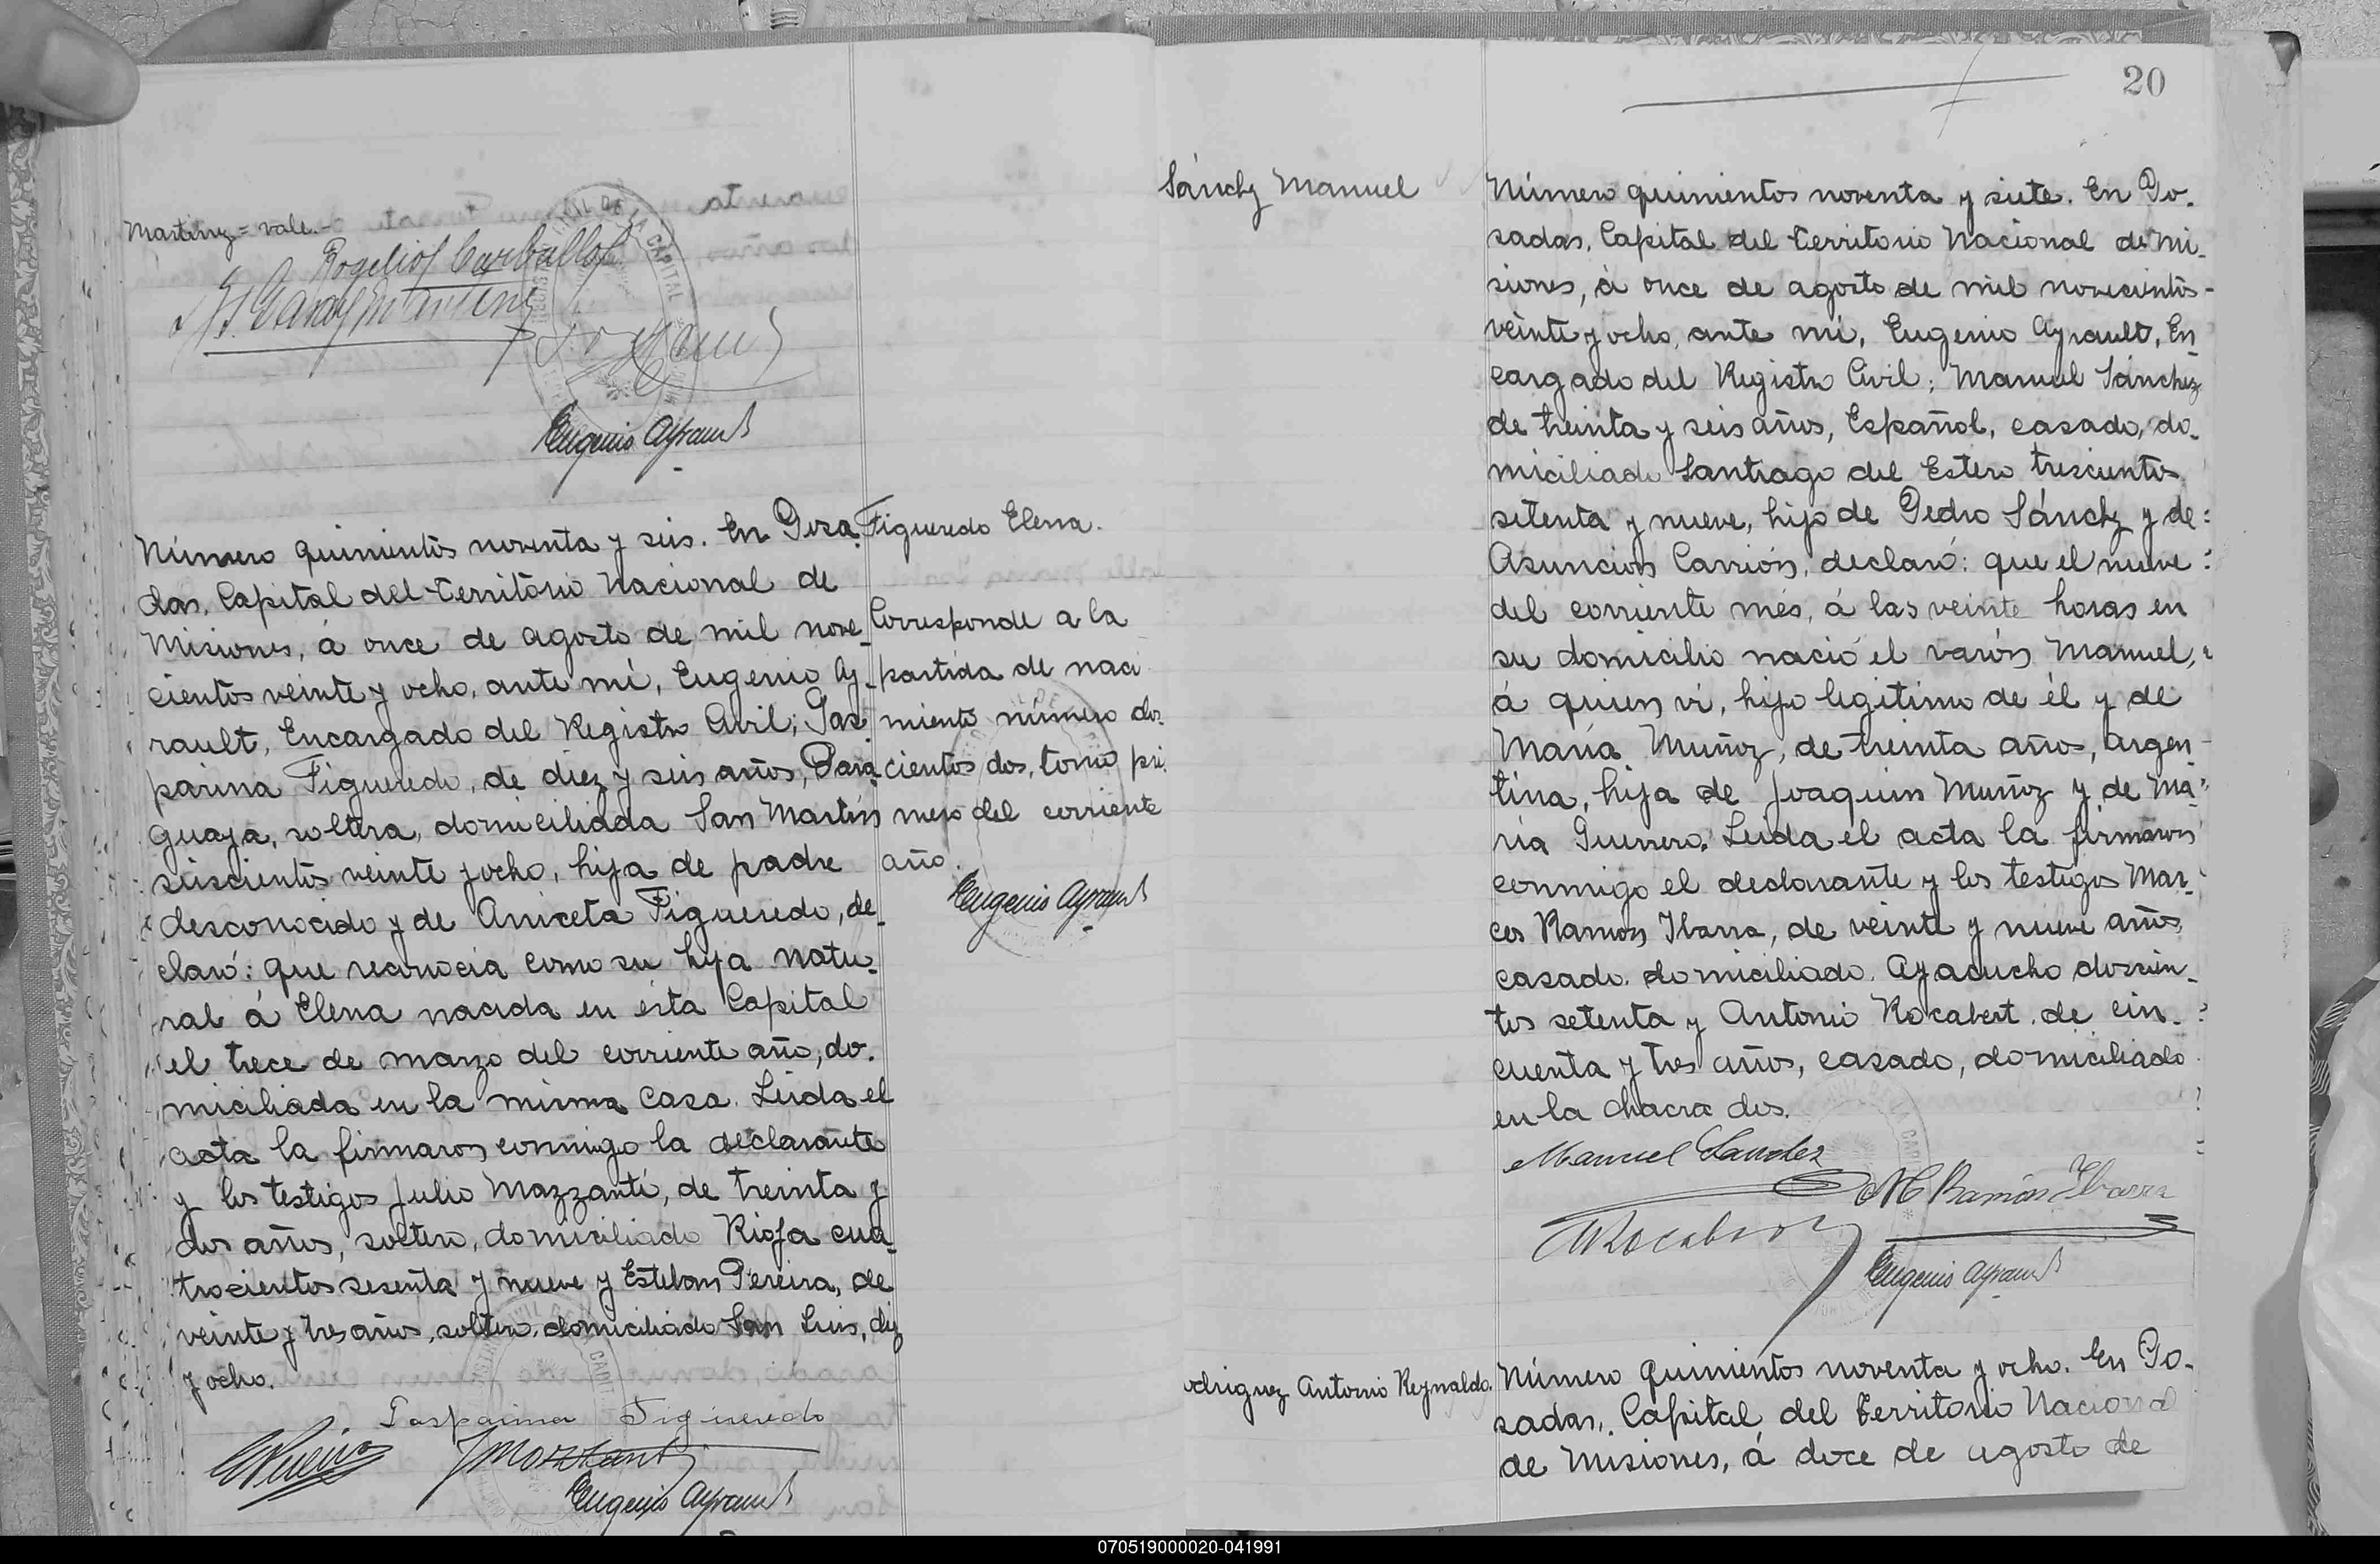 Martinez = vale. -
Rogelio Carballo
Eugenio Ayrault
Figueredo Elena.
Número quinientos noventa y seis. En Posa-
das, Capital del Territorio Nacional de
Misiones, á once de agosto de mil nove-
cientos veinte y ocho, ante mí, Eugenio Ay-
rault, Encargado del Registro Civil; Gas-
parina Figueredo, de diez y seis años, Para-
guaya, soltera, domiciliada San Martín
seiscientos veinte y ocho, hija de padre
desconocido y de Aniceta Figueredo, de-
claró: que reconocia como su hija natu-
ral á Elena nacida en ésta Capital
el trece de marzo del corriente año, do-
miciliada en la misma casa. Leida el
acta la firmaron conmigo la declarante
y los testigos Julio Mazzanti, de treinta y
dos años, soltero, domiciliado Rioja cua-
trocientos sesenta y nueve y Esteban Pereira, de
veinte y tres años, soltero, domiciliado San Luis, diez
y ocho.
Corresponde a la
partida de naci-
miento número dos-
cientos dos, tomo pri-
mero del corriente
año.
Eugenio Ayrault
Gasparina Figueredo
EPereira JMazzanti
Eugenio Ayrault
20
Sánchz Manuel
Número quinientos noventa y siete. En Po-
sadas, Capital del Territorio Nacional de Mi-
siones, á once de agosto de mil novecientos-
veinte y ocho, ante mí, Eugenio Ayrault, En-
cargado del Registro Civil; Manuel Sánchez
de treinta y seis años, Español, casado, do-
miciliado Santiago del Estero trescientos
setenta y nueve, hijo de Pedro Sánchz y de:
Asunción Carrión, declaró: que el nueve:
del corriente més, á las veinte horas en
su domicilio nació el varón Manuel,
á quien ví, hijo legitimo de él y de
María Muñoz, de treinta años, argen-
tina, hija de Joaquin Muñoz y de Ma-
ría Guerrero. Leida el acta la firmaron
conmigo el declarante y los testigos Mar-
cos Ramon Ibarra, de veinte y nueve años,
casado, domiciliado. Ayacucho doscien-
tos setenta y Antonio Rocabert, de cin-
cuenta y tres años, casado, domiciliado
en la chacra dos.
Manuel Sanchez
M Ramón Ibarra
ARocabert
Eugenio Ayrault
odriguez Antonio Reynaldo.
Número quinientos noventa y ocho. En Po-
sadas, Capital del Territorio Nacional
de Misiones, á doce de agosto de
070519000020-041991